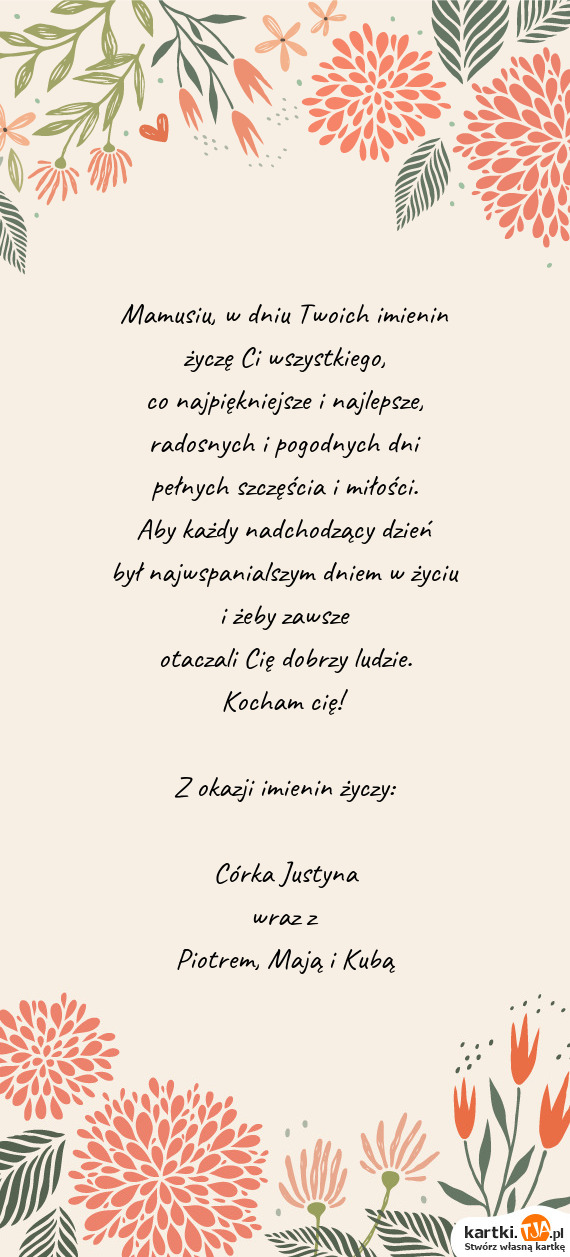 Mamusiu, w dniu Twoich imienin
życzę Ci wszystkiego,
co najpiękniejsze i najlepsze,
radosnych i pogodnych dni
pełnych szczęścia i miłości.
Aby każdy nadchodzący dzień
był najwspanialszym dniem w życiu
i żeby zawsze
otaczali Cię dobrzy ludzie.
Kocham cię!
Z okazji imienin życzy:
Córka Justyna
wraz z
Piotrem, Mają i Kubą
kartki.TJA.pl
Stwórz własną kartkę